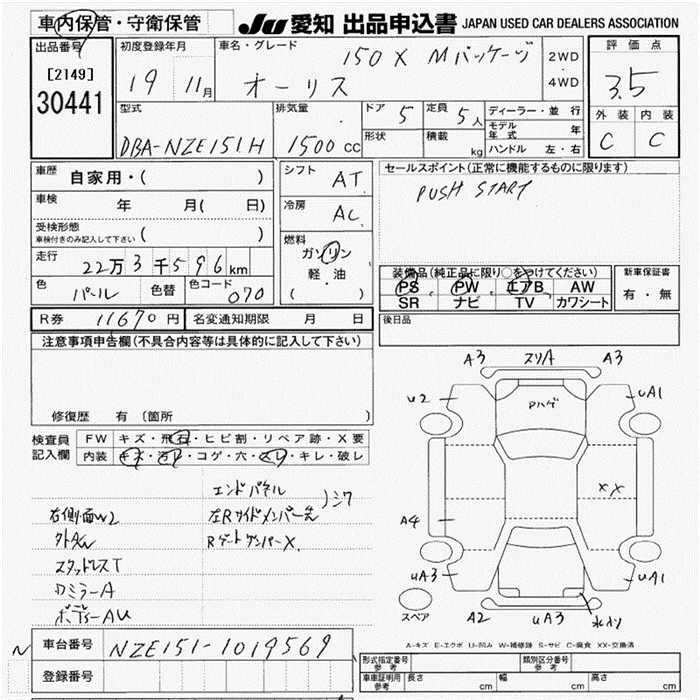 車内保管・守衛保管
JU 愛知 出品申込書 JAPAN USED CAR DEALERS ASSOCIATION
出品番号
[2149]
30441
初度登録年月
19 11月
車名・グレード
150 X Mパッケージ
オーリス
2WD
・
4WD
評価点
3.5
外装 内装
C C
型式
DBA-NZE151H
排気量
1500 CC
ドア 5
形状
定員 5人
積載 kg
ディーラー・並行
モデル年式 年
ハンドル 左・右
車歴
自家用・( )
車検
年 月( 日)
受検形態
車検付きのみ記入して下さい ( )
走行
22万3千596km
色
パール
色替
色コード
070
シフト
AT
冷房
AC
燃料
ガソリン
軽・油
( ・ )
セールスポイント(正常に機能するものに限ります)
PUSH START
装備品(純正品に限り○をつけてください)
PS PW エアB AW
SR ナビ TV カワシート
新車保証書
有・無
後日品
R券 11670円
名変通知期限 月 日
注意事項申告欄(不具合内容等は具体的に記入して下さい)
修復歴 有〔箇所 〕
検査員
記入欄
FW キズ・飛石・ヒビ割・リペア跡・X要
内装 キズ・汚レ・コゲ・穴・スレ・キレ・破レ
エンドパネル
右側面W2
左Rサイドメンバー先
)シワ
外AW
RゲートダンパーX.
スタッドレスT
ロミラーA
ボデーAU
A3 スリA A3
U2
Pハゲ
UA1
A4
XX
UA3
UA1
A2
UA3
スペア
A-キズ E-エクボ U-凹み W-補修跡 S-サビ C-腐食 XX-交換済
車台番号
NZE151-1019569
登録番号
形式指定番号
参考
類別区分番号
参考
車庫証明用
参考
長さ cm
幅 cm
高さ cm